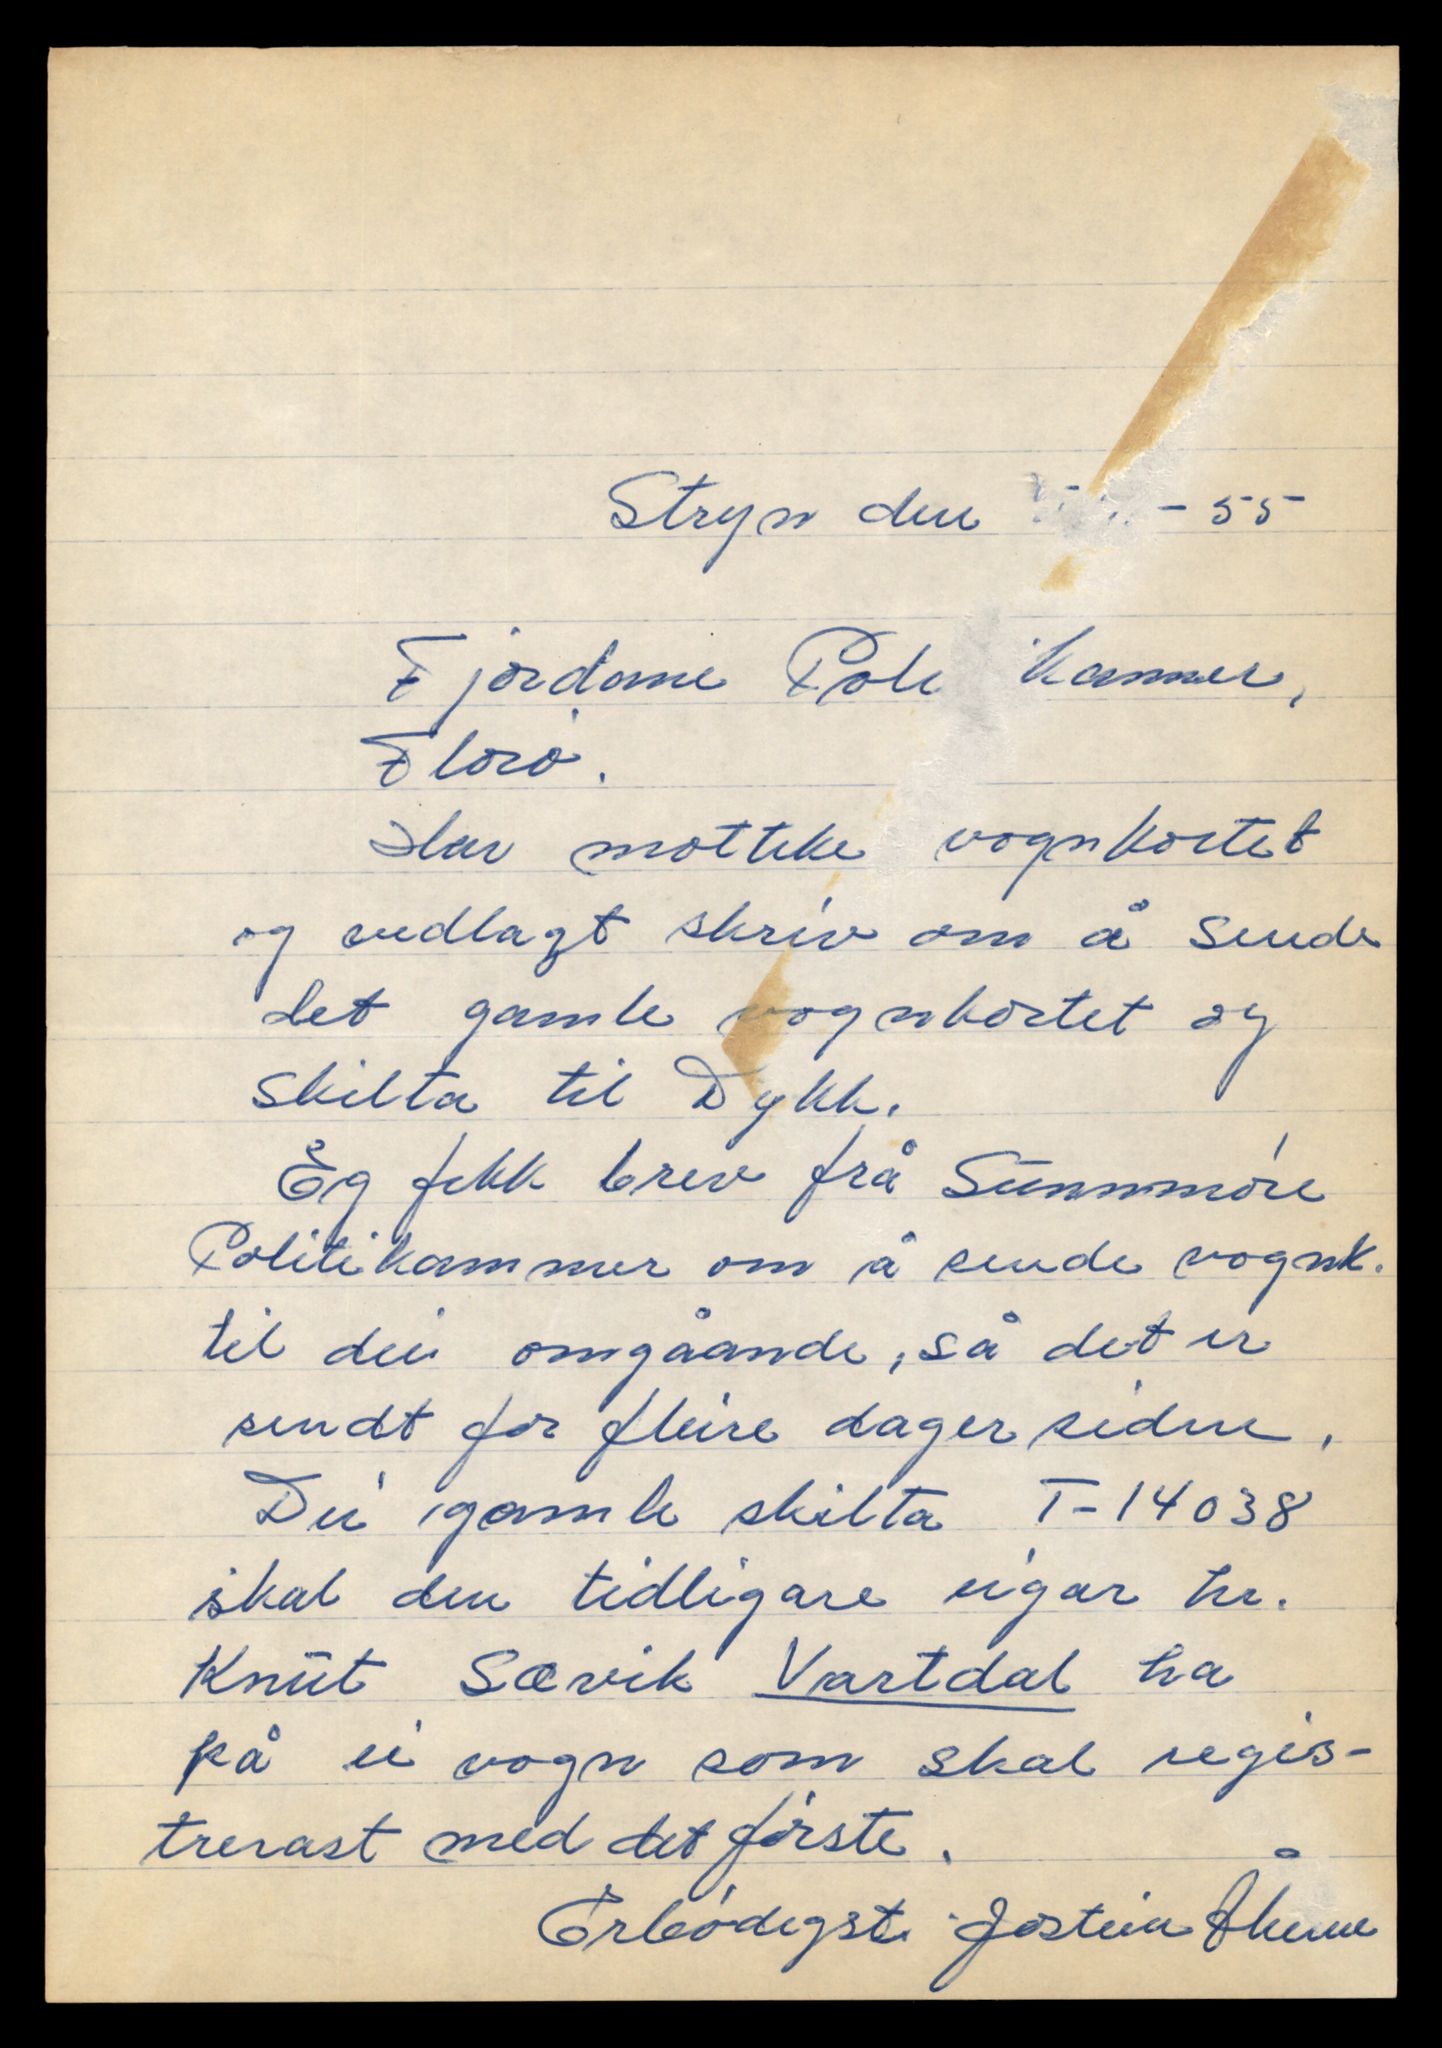 Stryn den - 55
Fjordane Poli kammer,
Florö.
Har motteke vognkortet
og vedlagt skriv om å sende
det gamle vognkortet og
skilta til Dykk.
Eg fekk brev frå Sunnmöre
Politikammer om å sende vognk.
til dei omgåande, så det er
sendt for fleire dager siden.
Dei gamle skilta T-14038
skal den tidligare eigar hr.
Knut Sævik Vartdal ha
på ei vogn som skal regis-
trerast med det förste.
Erbödigst Jostein